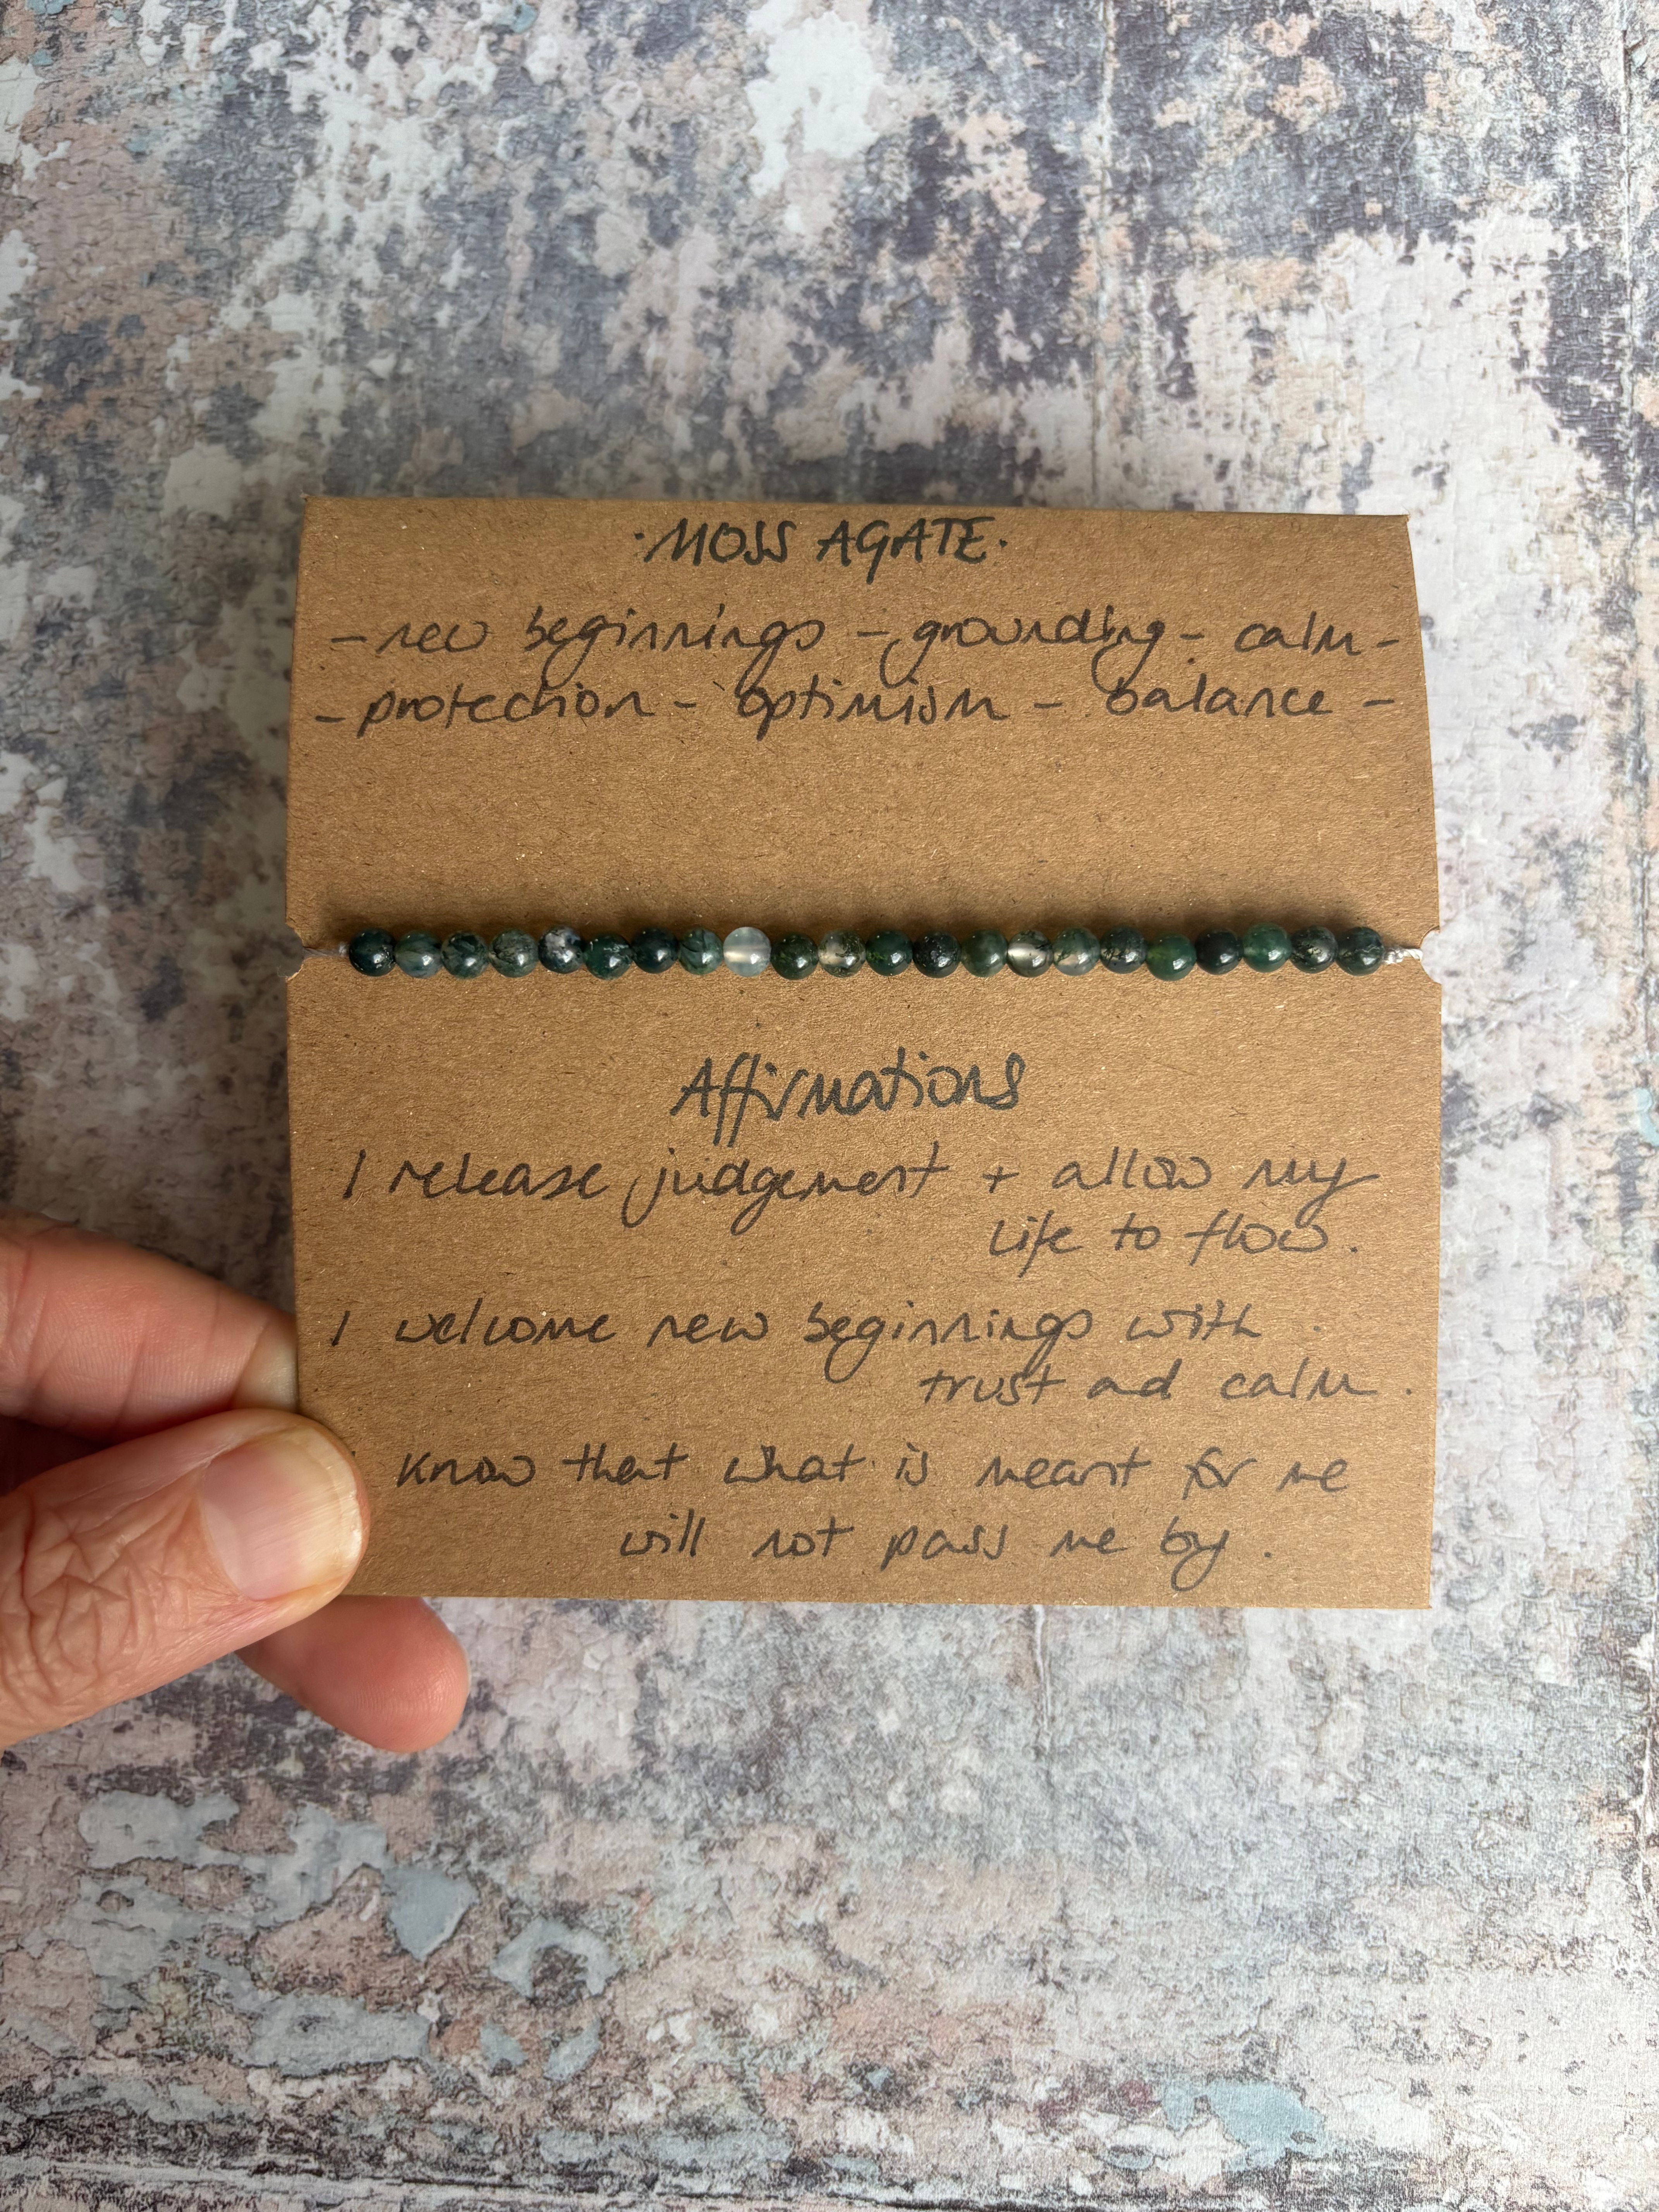 ·MOSS AGATE·
- new beginnings - grounding - calm -
- protection - optimism - balance -
Affirmations
I release judgement + allow my
life to flow.
I welcome new beginnings with
trust ad calm.
I know that what is meant for me
will not pass me by.